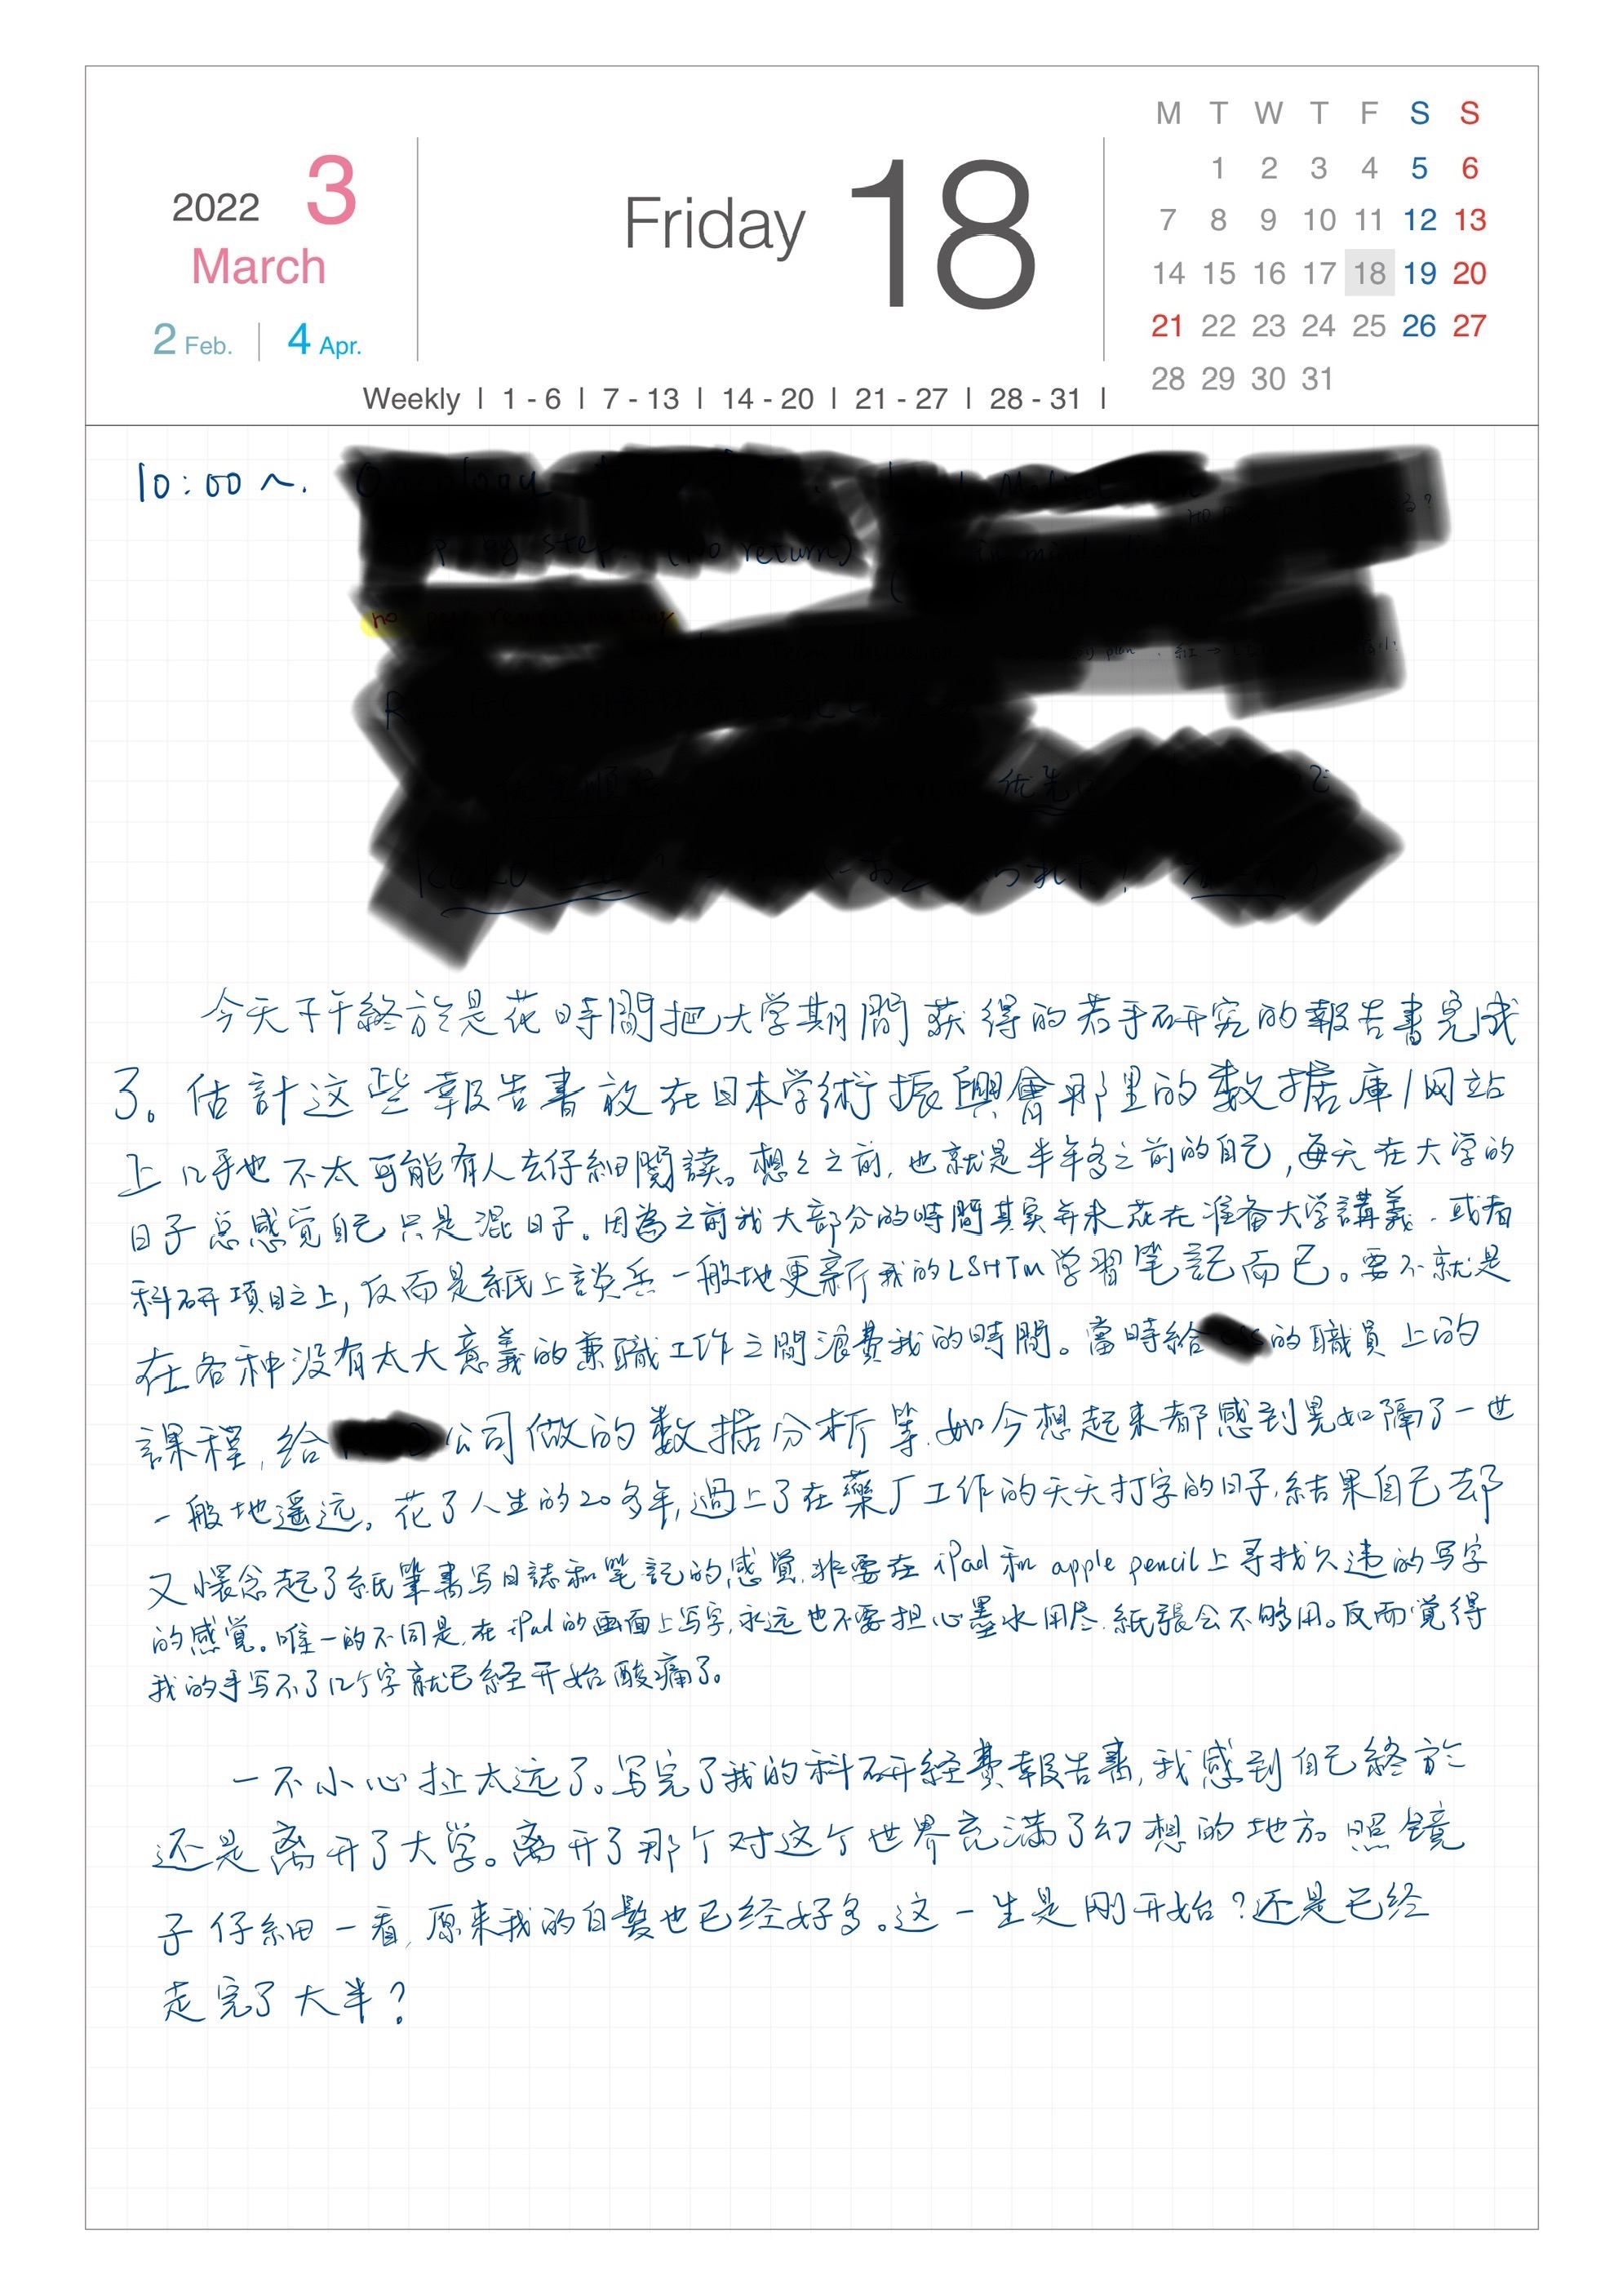 M T W T F S S
1 2 3 4 5 6
7 8 9 10 11 12 13
14 15 16 17 18 19 20
21 22 23 24 25 26 27
28 29 30 31
2022 3
March
2 Feb. | 4 Apr.
Friday 18
Weekly | 1 - 6 | 7 - 13 | 14 - 20 | 21 - 27 | 28 - 31 |
10:00~.
今天下午終於是花時間把大学期間获得的若手研究的報告書完成
了。估計这些報告書放在日本学術振興會那里的数据庫/网站
上几乎也不太可能有人去仔細閱読。想々之前,也就是半年多之前的自己,每天在大学的
日子总感觉自己只是混日子。因為之前我大部分的時間其实并未花在准备大学講義、或者
科研項目之上,反而是紙上談兵一般地更新我的LSHTM学習笔記而已。要不就是
在各种没有太大意義的兼職工作之間浪費我的時間。當時給 的職員上的
課程,给 公司做的数据分析等,如今想起来都感到晃如隔了一世
一般地遥远。花了人生的20多年,過上了在藥厂工作的天天打字的日子,結果自己却
又懐念起了紙筆書写日誌和笔記的感觉,非要在iPad和apple pencil上寻找久违的写字
的感觉。唯一的不同是,在iPad的画面上写字,永远也不要担心墨水用尽,紙張会不够用。反而覚得
我的手写不了几个字就已經开始酸痛了。
一不小心扯太远了。写完了我的科研経費報告書,我感到自己終於
还是离开了大学。离开了那个对这个世界充满了幻想的地方。照鏡
子仔細一看,原来我的白髪也已经好多。这一生是刚开始?还是已经
走完了大半?